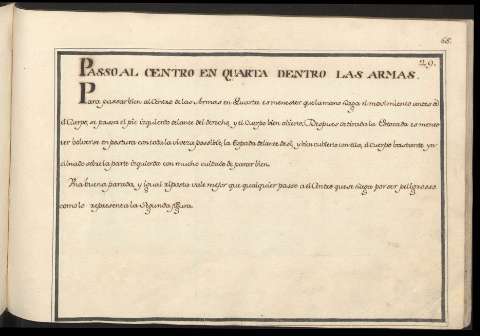 68.
29.
PASSO AL CENTRO EN QUARTA DENTRO LAS ARMAS.
Para passar bien al Centro de las Armas en Quarta es menester que la mano haga el movimiento antes de
el Cuerpo, se passa el pie izquierdo delante del derecho, y el Cuerpo bien abierto. Despues de tirada la Estocada es menes
ter bolverse en pastura con toda la viveza possible, la Espada delante de si, y bien cubierto con ella, el cuerpo bastante yn
clinado sobre la parte izquierda con mucho cuidado de parar bien.
Una buena parada, y igual respuesta vale mejor que qualquier passo al Centro que se haga por ser peligrosos
como lo representa la segunda figura.